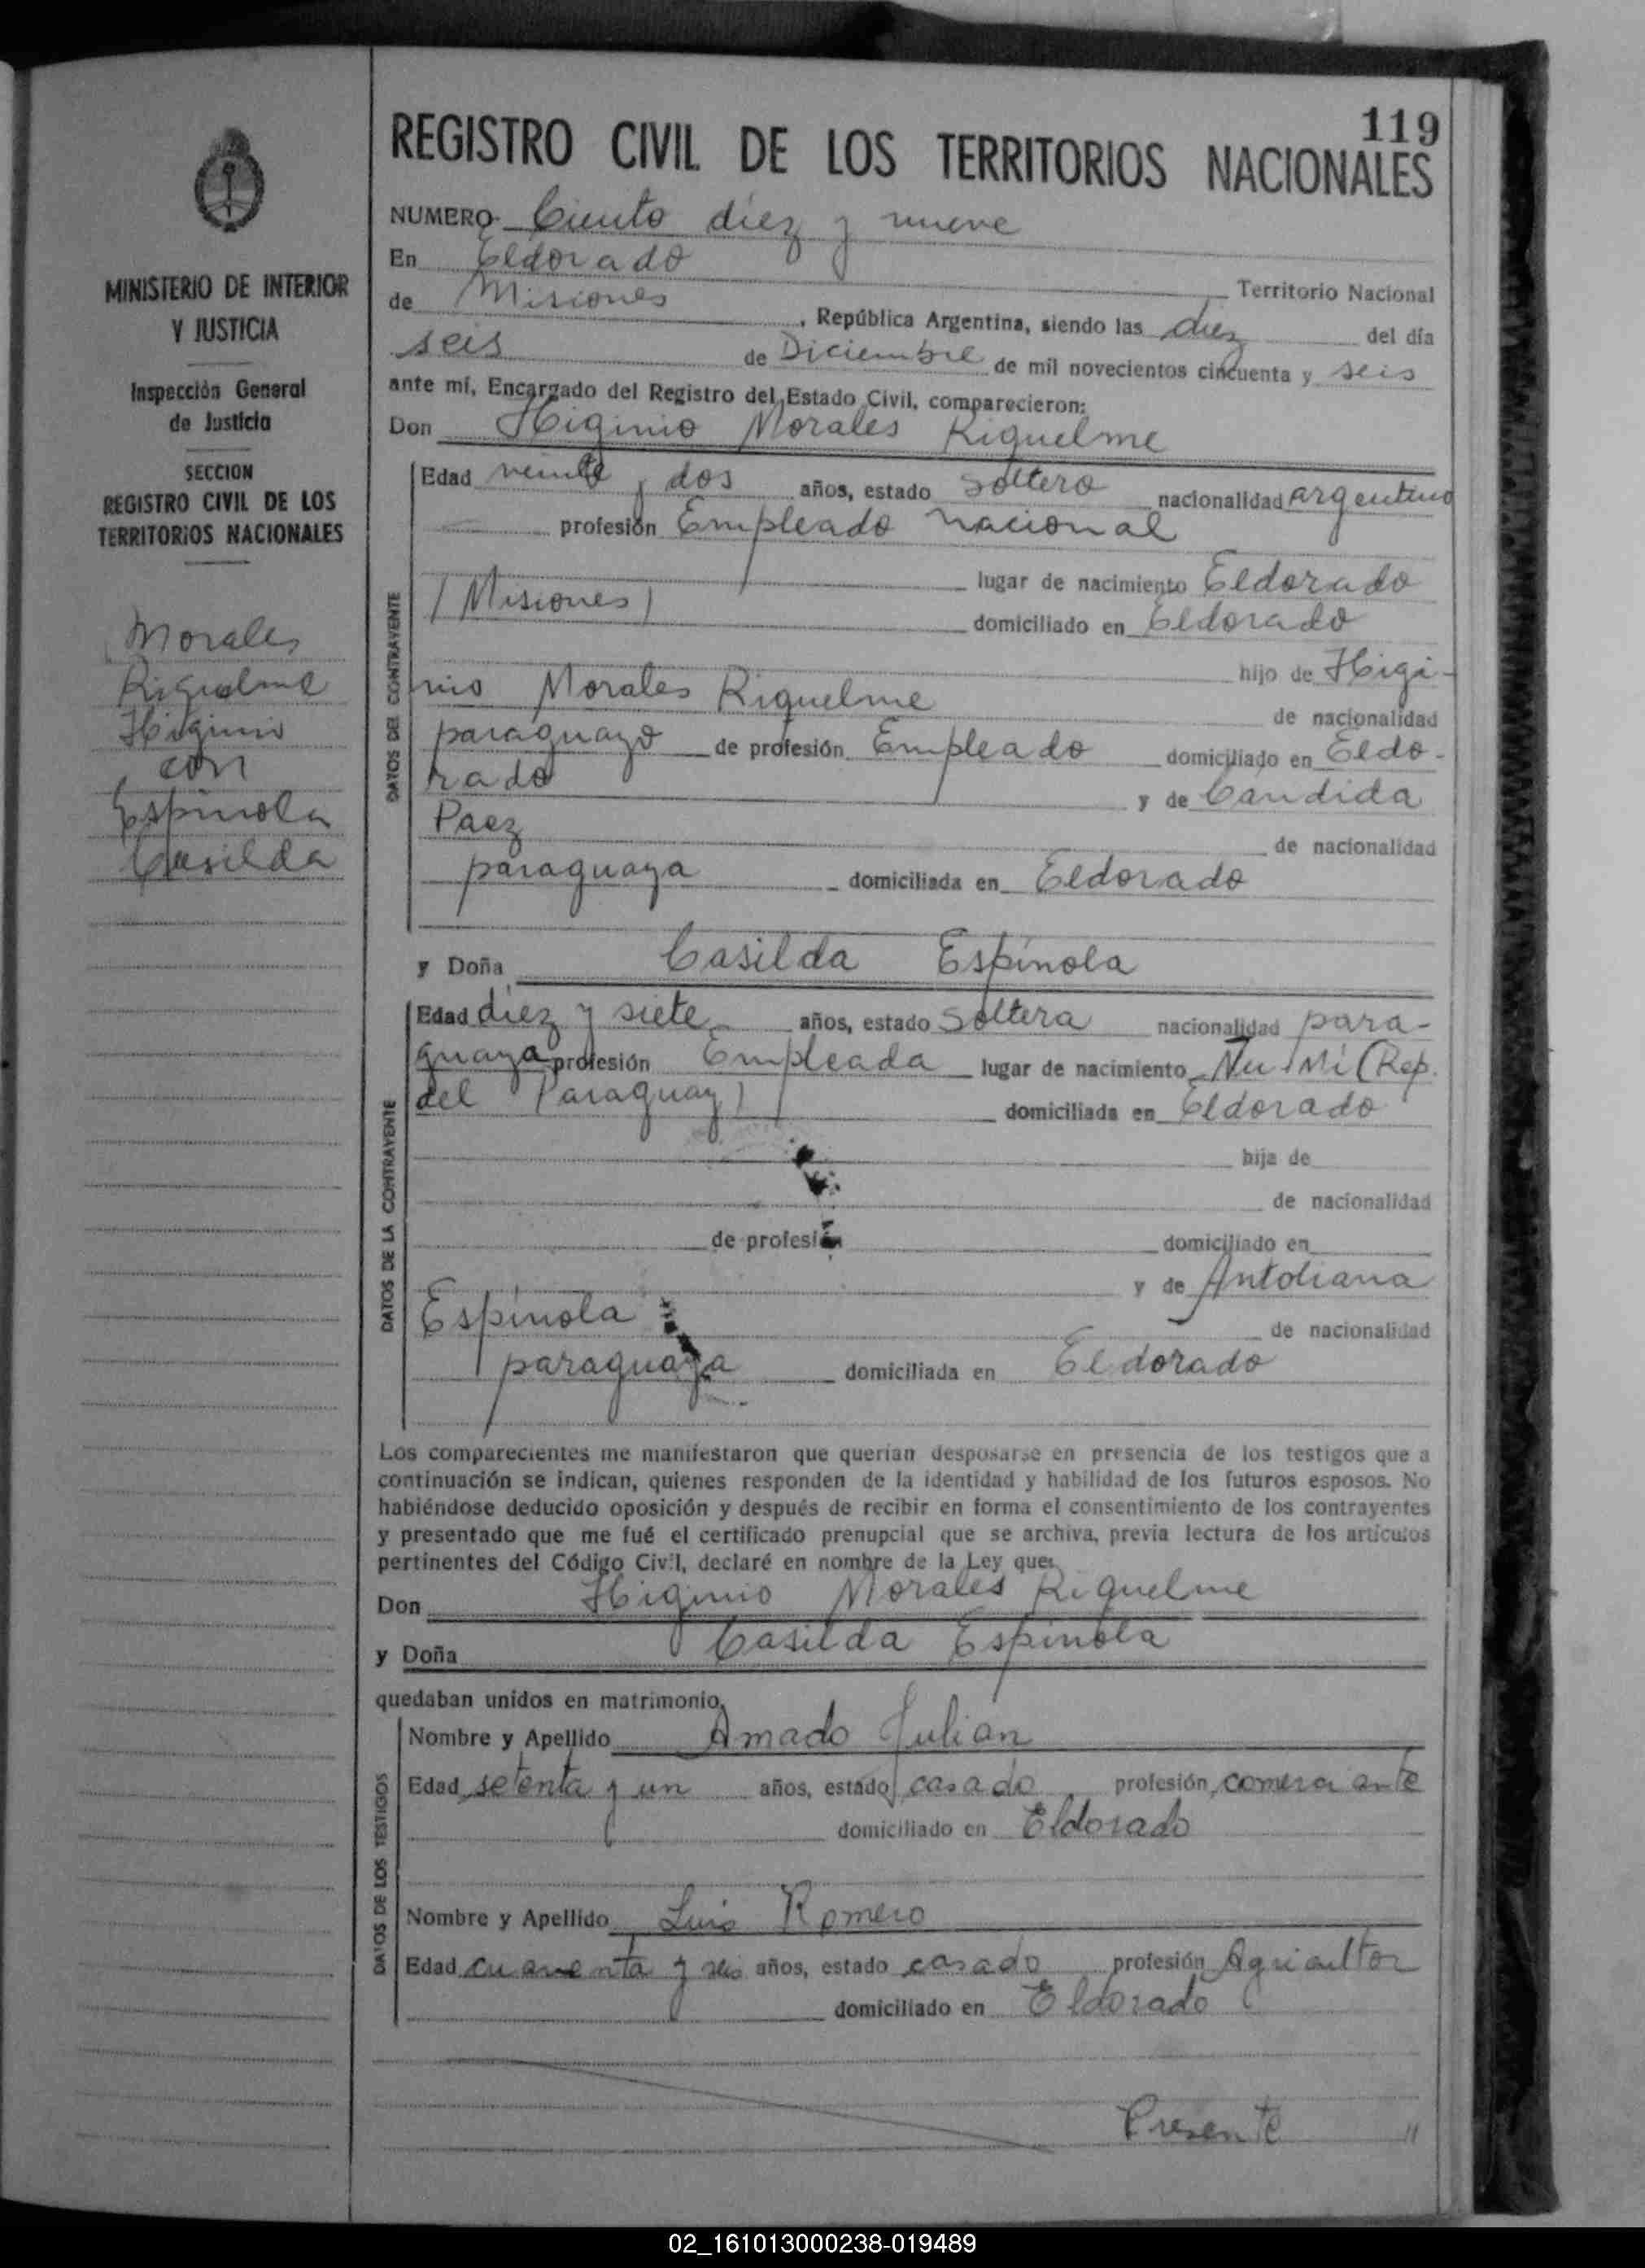 119
REGISTRO CIVIL DE LOS TERRITORIOS NACIONALES
NUMERO Ciento diez y nueve
En Eldorado
Territorio Nacional
de Misiones, República Argentina, siendo las diez del día
seis de Diciembre de mil novecientos cincuenta y seis
ante mí, Encargado del Registro del Estado Civil, comparecieron:
Don Higinio Morales Riquelme
DATOS DEL CONTRAYENTE
Edad veinte y dos años, estado soltero nacionalidad argentino
profesión Empleado nacional
lugar de nacimiento Eldorado
(Misiones)
domiciliado en Eldorado
hijo de Higi-
nio Morales Riquelme
de nacionalidad
paraguayo de profesión Empleado domiciliado en Eldo-
rado
y de Candida
Paez
de nacionalidad
paraguaya domiciliada en Eldorado
y Doña Casilda Espínola
DATOS DE LA CONTRAYENTE
Edad diez y siete años, estado soltera nacionalidad para-
guaya profesión Empleada lugar de nacimiento (Rep.
del Paraguay)
domiciliada en Eldorado
hija de
de nacionalidad
de profesión domiciliado en
y de Antoliana
Espínola
de nacionalidad
paraguaya domiciliada en Eldorado
Los comparecientes me manifestaron que querían desposarse en presencia de los testigos que a
continuación se indican, quienes responden de la identidad y habilidad de los futuros esposos. No
habiéndose deducido oposición y después de recibir en forma el consentimiento de los contrayentes
y presentado que me fué el certificado prenupcial que se archiva, previa lectura de los artículos
pertinentes del Código Civil, declaré en nombre de la Ley que:
Don Higinio Morales Riquelme
y Doña Casilda Espínola
quedaban unidos en matrimonio,
DATOS DE LOS TESTIGOS
Nombre y Apellido Amado Julian
Edad setenta y un años, estado casado profesión comerciante
domiciliado en Eldorado
Nombre y Apellido Luis Romero
Edad cuarenta y seis años, estado casado profesión Agricultor
domiciliado en Eldorado
Presente //
MINISTERIO DE INTERIOR
Y JUSTICIA
Inspección General
de Justicia
SECCION
REGISTRO CIVIL DE LOS
TERRITORIOS NACIONALES
Morales
Riquelme
Higinio
con
Espinola
Casilda
02_161013000238-019489